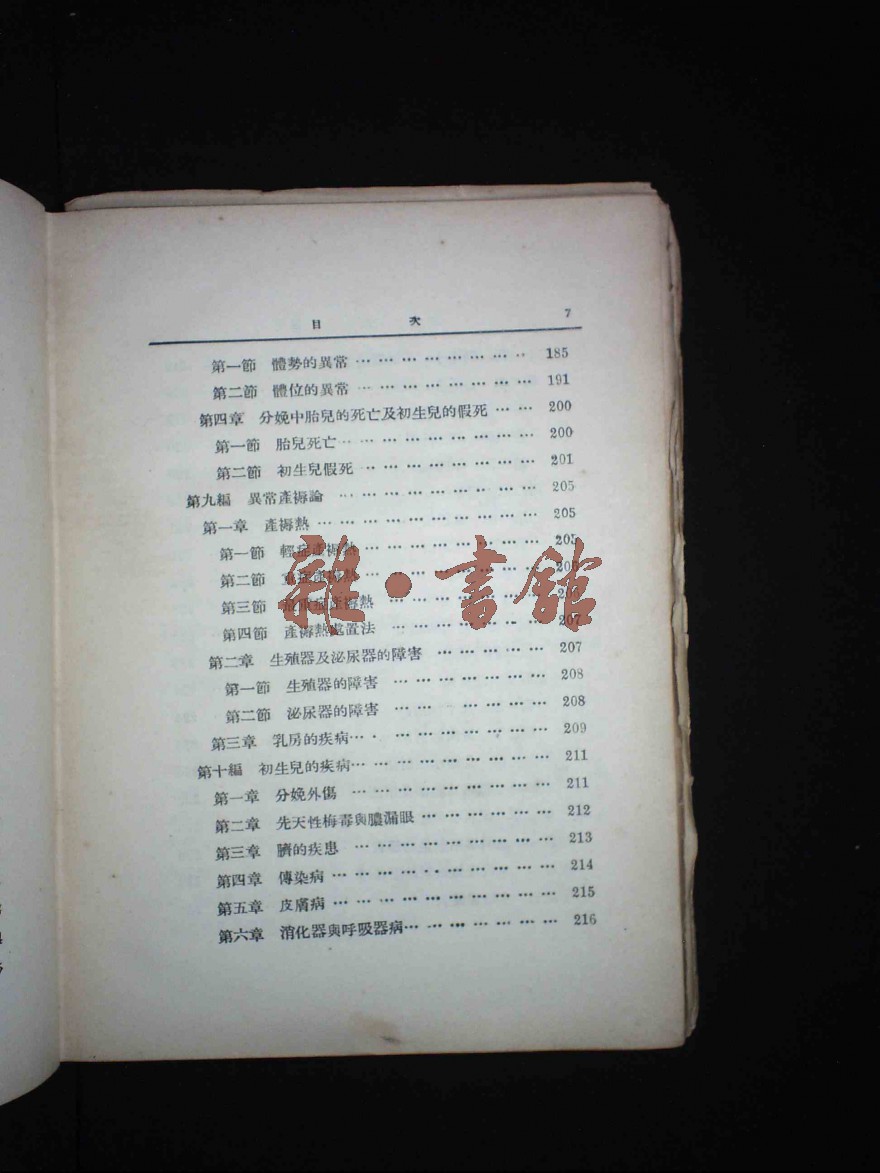 目 次 7
第一節 體勢的異常 … … … … … … … … 185
第二節 體位的異常 … … … … … … … … 191
第四章 分娩中胎兒的死亡及初生兒的假死 … … 200
第一節 胎兒死亡 … … … … … … … … … 200
第二節 初生兒假死 … … … … … … … … 201
第九編 異常產褥論 … … … … … … … … … 205
第一章 產褥熱 … … … … … … … … … … 205
第一節 輕症產褥熱 … … … … … … … … 205
第二節 產褥熱 … … … … … … … …
第三節 產褥熱 … … … … … … …
第四節 產褥熱處置法 … … … … … … … 207
第二章 生殖器及泌尿器的障害 … … … … … 207
第一節 生殖器的障害 … … … … … … … 208
第二節 泌尿器的障害 … … … … … … … 208
第三章 乳房的疾病 … … … … … … … … 209
第十編 初生兒的疾病 … … … … … … … … 211
第一章 分娩外傷 … … … … … … … … … 211
第二章 先天性梅毒與膿漏眼 … … … … … … 212
第三章 臍的疾患 … … … … … … … … … 213
第四章 傳染病 … … … … … … … … … … 214
第五章 皮膚病 … … … … … … … … … … 215
第六章 消化器與呼吸器病 … … … … … … … 216
雜·書館